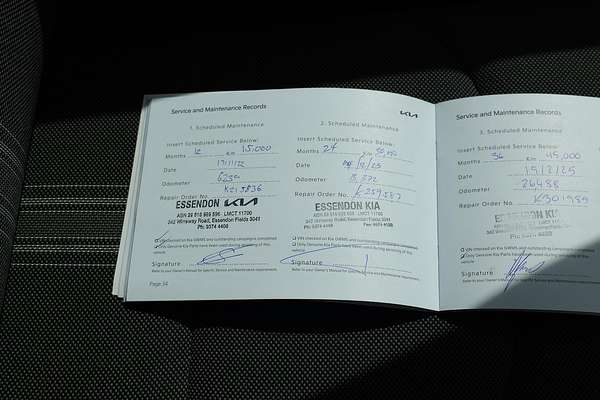 Service and Maintenance Records
KIA
1. Scheduled Maintenance
Insert Service Schedule Below:
Months 12 Km 15,000
Date
Odometer 6239
Repair Order No. K215836
ESSENDON KIA
ABN 89 618 609 596 LMCT 11700
342 Wirraway Road, Essendon Fields 3041
Ph: 9374 4488
VIN checked on the GWMS and outstanding campaigns completed
Only Genuine Kia Parts have been used during servicing of this
vehicle
Signature
Refer to your Owner's Manual for specific Service and Maintenance requirements.
Page 34
2. Scheduled Maintenance
Insert Service Schedule Below:
Months 24 Km 30,000
Date
Odometer
Repair Order No. K259587
ESSENDON KIA
342 Wirraway Road, Essendon Fields 3041
Ph: 9374 4488
VIN checked on the GWMS and outstanding campaigns completed
Only Genuine Kia Parts have been used during servicing of this
vehicle
Signature
Refer to your Owner's Manual for specific Service and Maintenance requirements.
Service and Maintenance Records
3. Scheduled Maintenance
Insert Service Schedule Below:
Months 36 Km 45,000
Date 15/3/25
Odometer 26488
Repair Order No. K301989
ESSENDON KIA
VIN checked on the GWMS and outstanding campaigns completed
Only Genuine Kia Parts have been used during servicing of this
vehicle
Signature
Refer to your Owner's Manual for specific Service and Maintenance requirements.